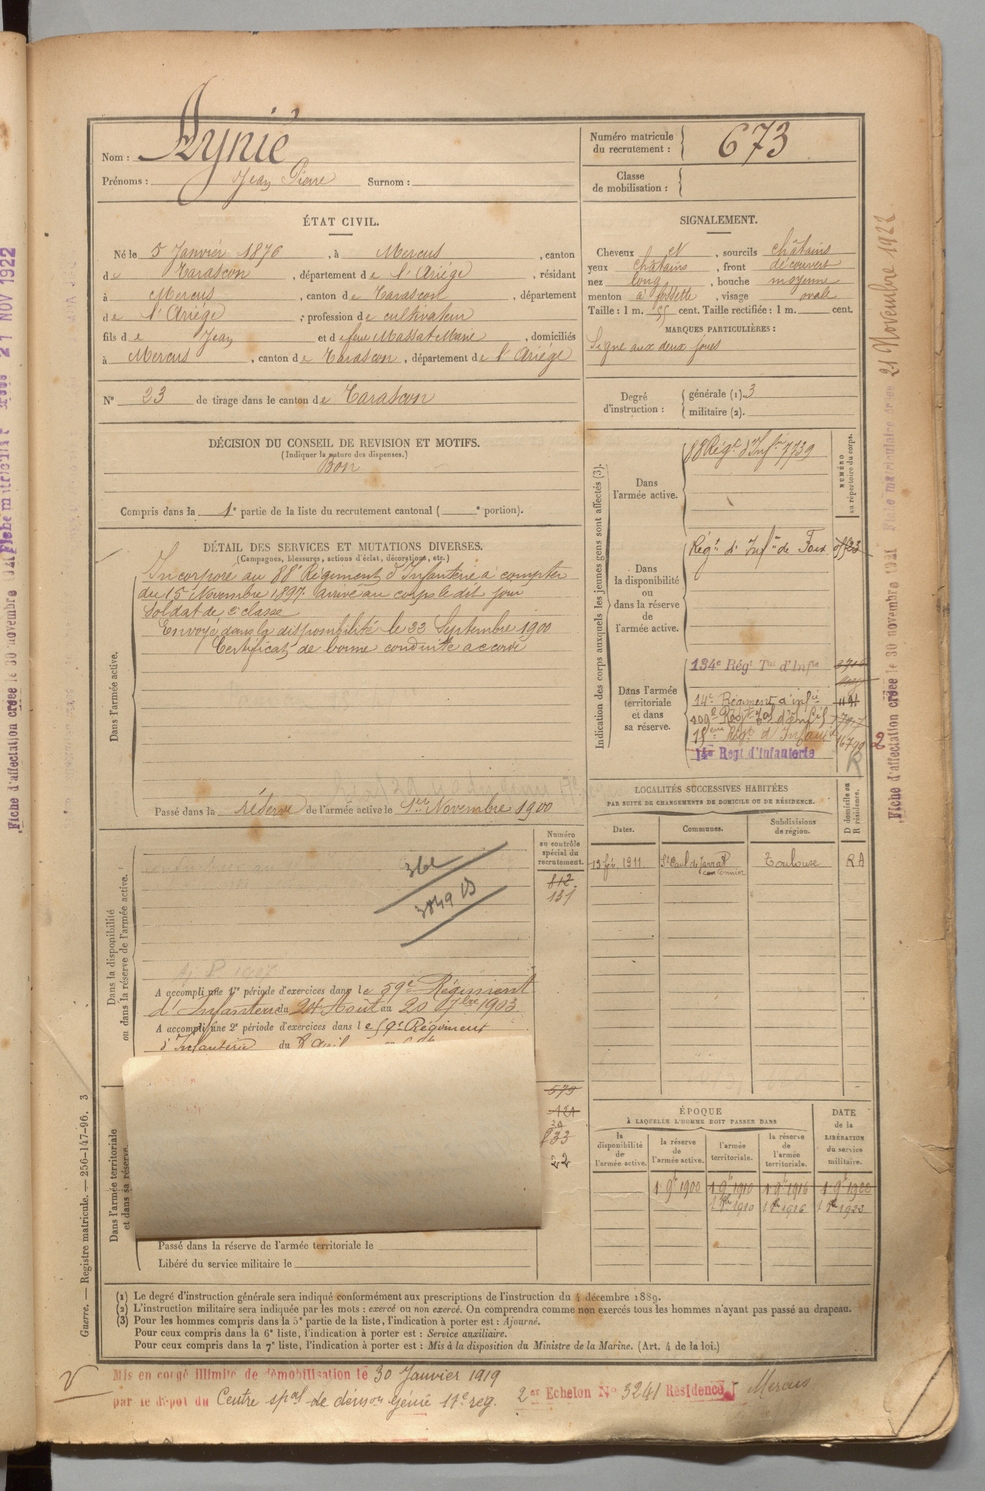 Nom : Aynié
Prénoms : Jean Pierre Surnom :
Numéro matricule du recrutement : 673
Classe de mobilisation :
ÉTAT CIVIL.
Né le 5 Janvier 1876, à Mercus, canton
de Tarascon, département de l'Ariége, résidant
à Mercus, canton de Tarascon, département
de l'Ariége, profession de cultivateur
fils de Jean et de feue Massat Marie, domiciliés
à Mercus, canton de Tarascon, département de l'Ariége
N° 23 de tirage dans le canton de Tarascon
SIGNALEMENT.
Cheveux N, sourcils châtains
yeux châtains, front découvert
nez long, bouche moyenne
menton à fossette, visage ovale
Taille : 1 m. cent. Taille rectifiée : 1 m. cent.
MARQUES PARTICULIÈRES :
Signe aux deux joues
Degré d'instruction : générale (1). 3
militaire (2).
DÉCISION DU CONSEIL DE REVISION ET MOTIFS.
(Indiquer la nature des dispenses.)
Bon
Compris dans la 1e partie de la liste du recrutement cantonal ( e portion).
DÉTAIL DES SERVICES ET MUTATIONS DIVERSES.
(Campagnes, blessures, actions d'éclat, décorations, etc.)
Dans l'armée active.
Incorporé au 88e Régiment d'Infanterie à compter
du 15 Novembre 1897. Arrivé au corps le dit jour
Soldat de 2e classe
Envoyé dans la disponibilité le 23 Septembre 1900
Certificat de bonne conduite accordé
Passé dans la réserve de l'armée active le 1er Novembre 1900
Indication des corps auxquels les jeunes gens sont affectés (3).
NUMÉRO au répertoire du corps.
Dans l'armée active.
88 Régt d'Infie 7739
Dans la disponibilité ou dans la réserve de l'armée active.
Régt d'Infie de Foix
Dans l'armée territoriale et dans sa réserve.
134e Régt Tal d'Infie
14e Régiment d'infie
109e Régt Tal d'Infie
15eme Régt d'Infant
14e Regt d'Infanterie
2
R
LOCALITÉS SUCCESSIVES HABITÉES
PAR SUITE DE CHANGEMENTS DE DOMICILE OU DE RÉSIDENCE.
Dates. Communes. Subdivisions de région. D domicile ou R résidence.
13 fév. 1911 St Paul de Jarrat cantonnier Toulouse RA
Dans la disponibilité ou dans la réserve de l'armée active.
Numéro au contrôle spécial du recrutement.
812
131
362
3849 B
A accompli une 1e période d'exercices dans le 59e Régiment
d'Infanterie du 24 Août au 20 7bre 1903
A accompli une 2e période d'exercices dans le 59e Régiment
d'Infanterie du
Dans l'armée territoriale et dans sa réserve.
579
22
Passé dans la réserve de l'armée territoriale le
Libéré du service militaire le
ÉPOQUE
À LAQUELLE L'HOMME DOIT PASSER DANS
DATE de la LIBÉRATION du service militaire.
la disponibilité de l'armée active.
la réserve de l'armée active.
l'armée territoriale.
la réserve de l'armée territoriale.
1 9e 1900 1 9e 1910 1 9e 1916 1 9e 1922
1910 1916 1922
Guerre. — Registre matricule. — 256-147-96. 3
(1) Le degré d'instruction générale sera indiqué conformément aux prescriptions de l'instruction du 4 décembre 1889.
(2) L'instruction militaire sera indiquée par les mots : exercé ou non exercé. On comprendra comme non exercés tous les hommes n'ayant pas passé au drapeau.
(3) Pour les hommes compris dans la 5e partie de la liste, l'indication à porter est : Ajourné.
Pour ceux compris dans la 6e liste, l'indication à porter est : Service auxiliaire.
Pour ceux compris dans la 7e liste, l'indication à porter est : Mis à la disposition du Ministre de la Marine. (Art. 4 de la loi.)
Mis en congé illimité de démobilisation le 30 Janvier 1919
par le dépôt du Centre spal de démon génie 17e reg. 2e Echelon No 3241 Résidence Mercus
Fiche matriculaire créée 21 Novembre 1922
Fiche d'affectation créée le 30 novembre 1921
21 NOV 1922
Fiche d'affectation créée le 30 novembre